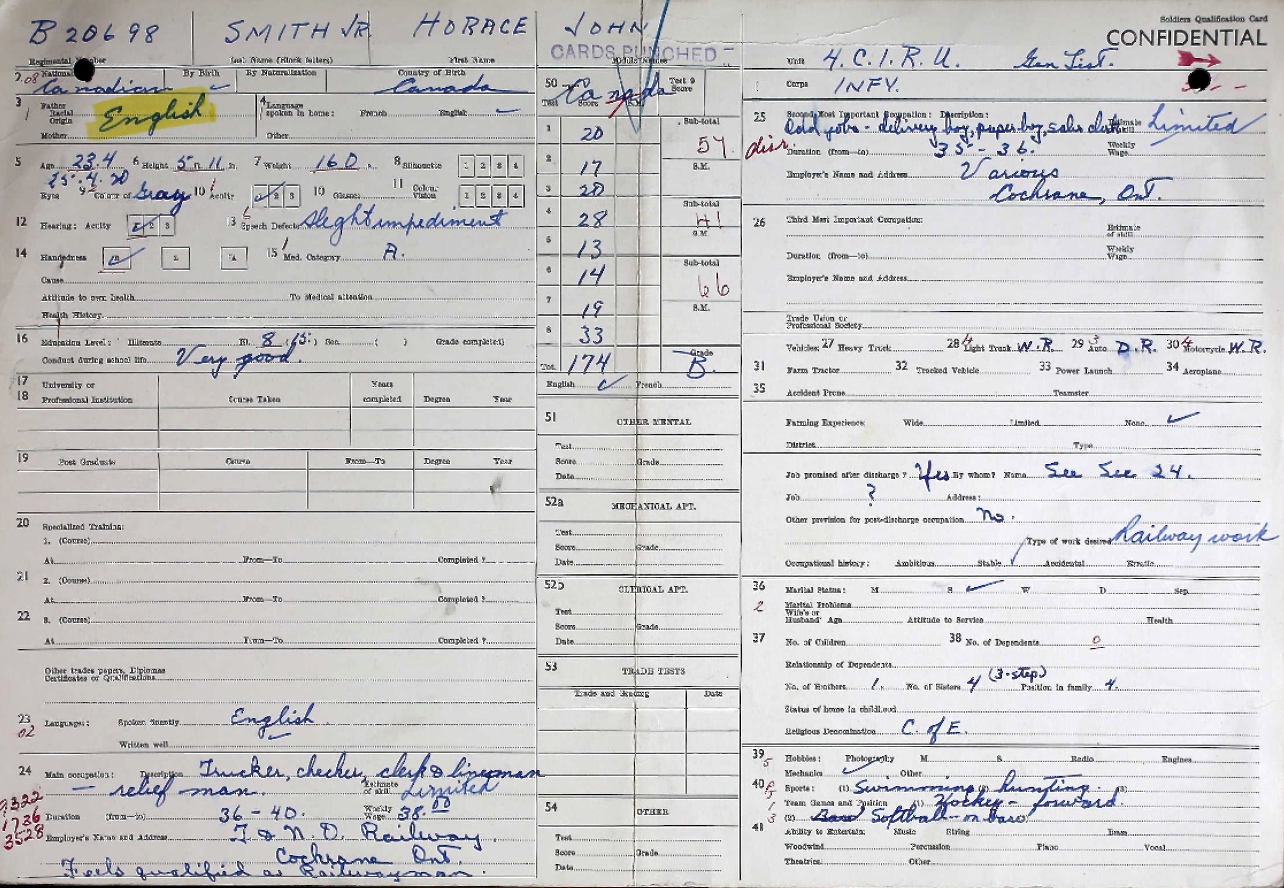 B 20698 SMITH JR. HORACE JOHN
Regimental Number Last Name (Block letters) First Name Middle Names
CARDS PUNCHED
2 08 National By Birth By Naturalization Country of Birth
Canadian ✓ Canada
3 Father
Racial Origin English
Mother
4 Language spoken in home: French English ✓
Other
5 Age 23.4 6 Height 5 ft 11 in. 7 Weight 160 8 Silhouette 1 2 3 4
25.4.20
9 Eyes Colour of Gray 10 Acuity 1 2 3 10 Glasses 11 Colour Vision 1 2 3 4
12 Hearing: Acuity 1 2 3 13 Speech Defects Slight impediment
14 Handedness 15 Med. Category A.
Cause
Attitude to own health To Medical attention
Health History
16 Education Level: Illiterate El. 8 (15) Sec. ( ) Grade completed)
Conduct during school life Very good.
17 University or
18 Professional Institution Course Taken Years completed Degree Year
19 Post Graduate Course From—To Degree Year
20 Specialized Training:
1. (Course)
At From—To Completed ?
21 2. (Course)
At From—To Completed ?
22 3. (Course)
At From—To Completed ?
Other trades papers, Diplomas
Certificates or Qualifications
23 02 Languages: Spoken fluently English
Written well
24 Main occupation: Description Trucker, checker, clerk & lineman
— relief man. Estimate of skill Limited
Duration (from—to) 36 - 40. Weekly Wage 38.00
Employer's Name and Address T. & N. O. Railway.
Cochrane Ont.
Feels qualified as Railwayman.
3322
1736
3528
50 Canada
Test Score S.M. Test 9 Score
1 20 Sub-total
57
2 17 S.M.
3 20
4 28 Sub-total
41
5 13 S.M.
6 14 Sub-total
66
7 19 S.M.
8 33
Tot. 174 Grade B.
English ✓ French
51 OTHER MENTAL
Test
Score Grade
Date
52a MECHANICAL APT.
Test
Score Grade
Date
52b CLERICAL APT.
Test
Score Grade
Date
53 TRADE TESTS
Trade and Grading Date
54 OTHER
Test
Score Grade
Date
Soldiers Qualification Card
CONFIDENTIAL
Unit 4. C.I.R.U. Gen List.
Corps INFY.
25 Second Most Important Occupation: Description:
Odd jobs - delivery boy, paper boy, sales clerk Estimate of skill Limited
Duration (from—to) 35 - 36. Weekly Wage
Employer's Name and Address Various
Cochrane, Ont.
26 Third Most Important Occupation:
Estimate of skill
Duration (from—to) Weekly Wage
Employer's Name and Address
Trade Union or
Professional Society
Vehicles: 27 Heavy Truck 28 4 Light Truck W.R. 29 3 Auto D.R. 30 4 Motorcycle W.R.
31 Farm Tractor 32 Tracked Vehicle 33 Power Launch 34 Aeroplane
35 Accident Prone Teamster
Farming Experience: Wide Limited None ✓
District Type
Job promised after discharge ? Yes By whom? Name See Sec 24.
Job ? Address:
Other provision for post-discharge occupation No.
Type of work desired Railway work
Occupational history: Ambitious Stable ✓ Accidental Erratic
36 Marital Status: M S ✓ W D Sep.
2 Marital Problems
Wife's or
Husband's Age Attitude to Service Health
37 No. of Children 38 No. of Dependents 0
Relationship of Dependents
No. of Brothers 1. No. of Sisters 4 (3-step) Position in family 4.
Status of home in childhood
Religious Denomination C. of E.
39 5 Hobbies: Photography M S Radio Engines
Mechanics ✓ Other
40 Sports: (1) Swimming (2) hunting. (3)
Team Games and Position (1) Hockey - forward.
(2) Softball - in baro
41 Ability to Entertain: Music String Brass
Woodwind Percussion Piano Vocal
Theatrics Other